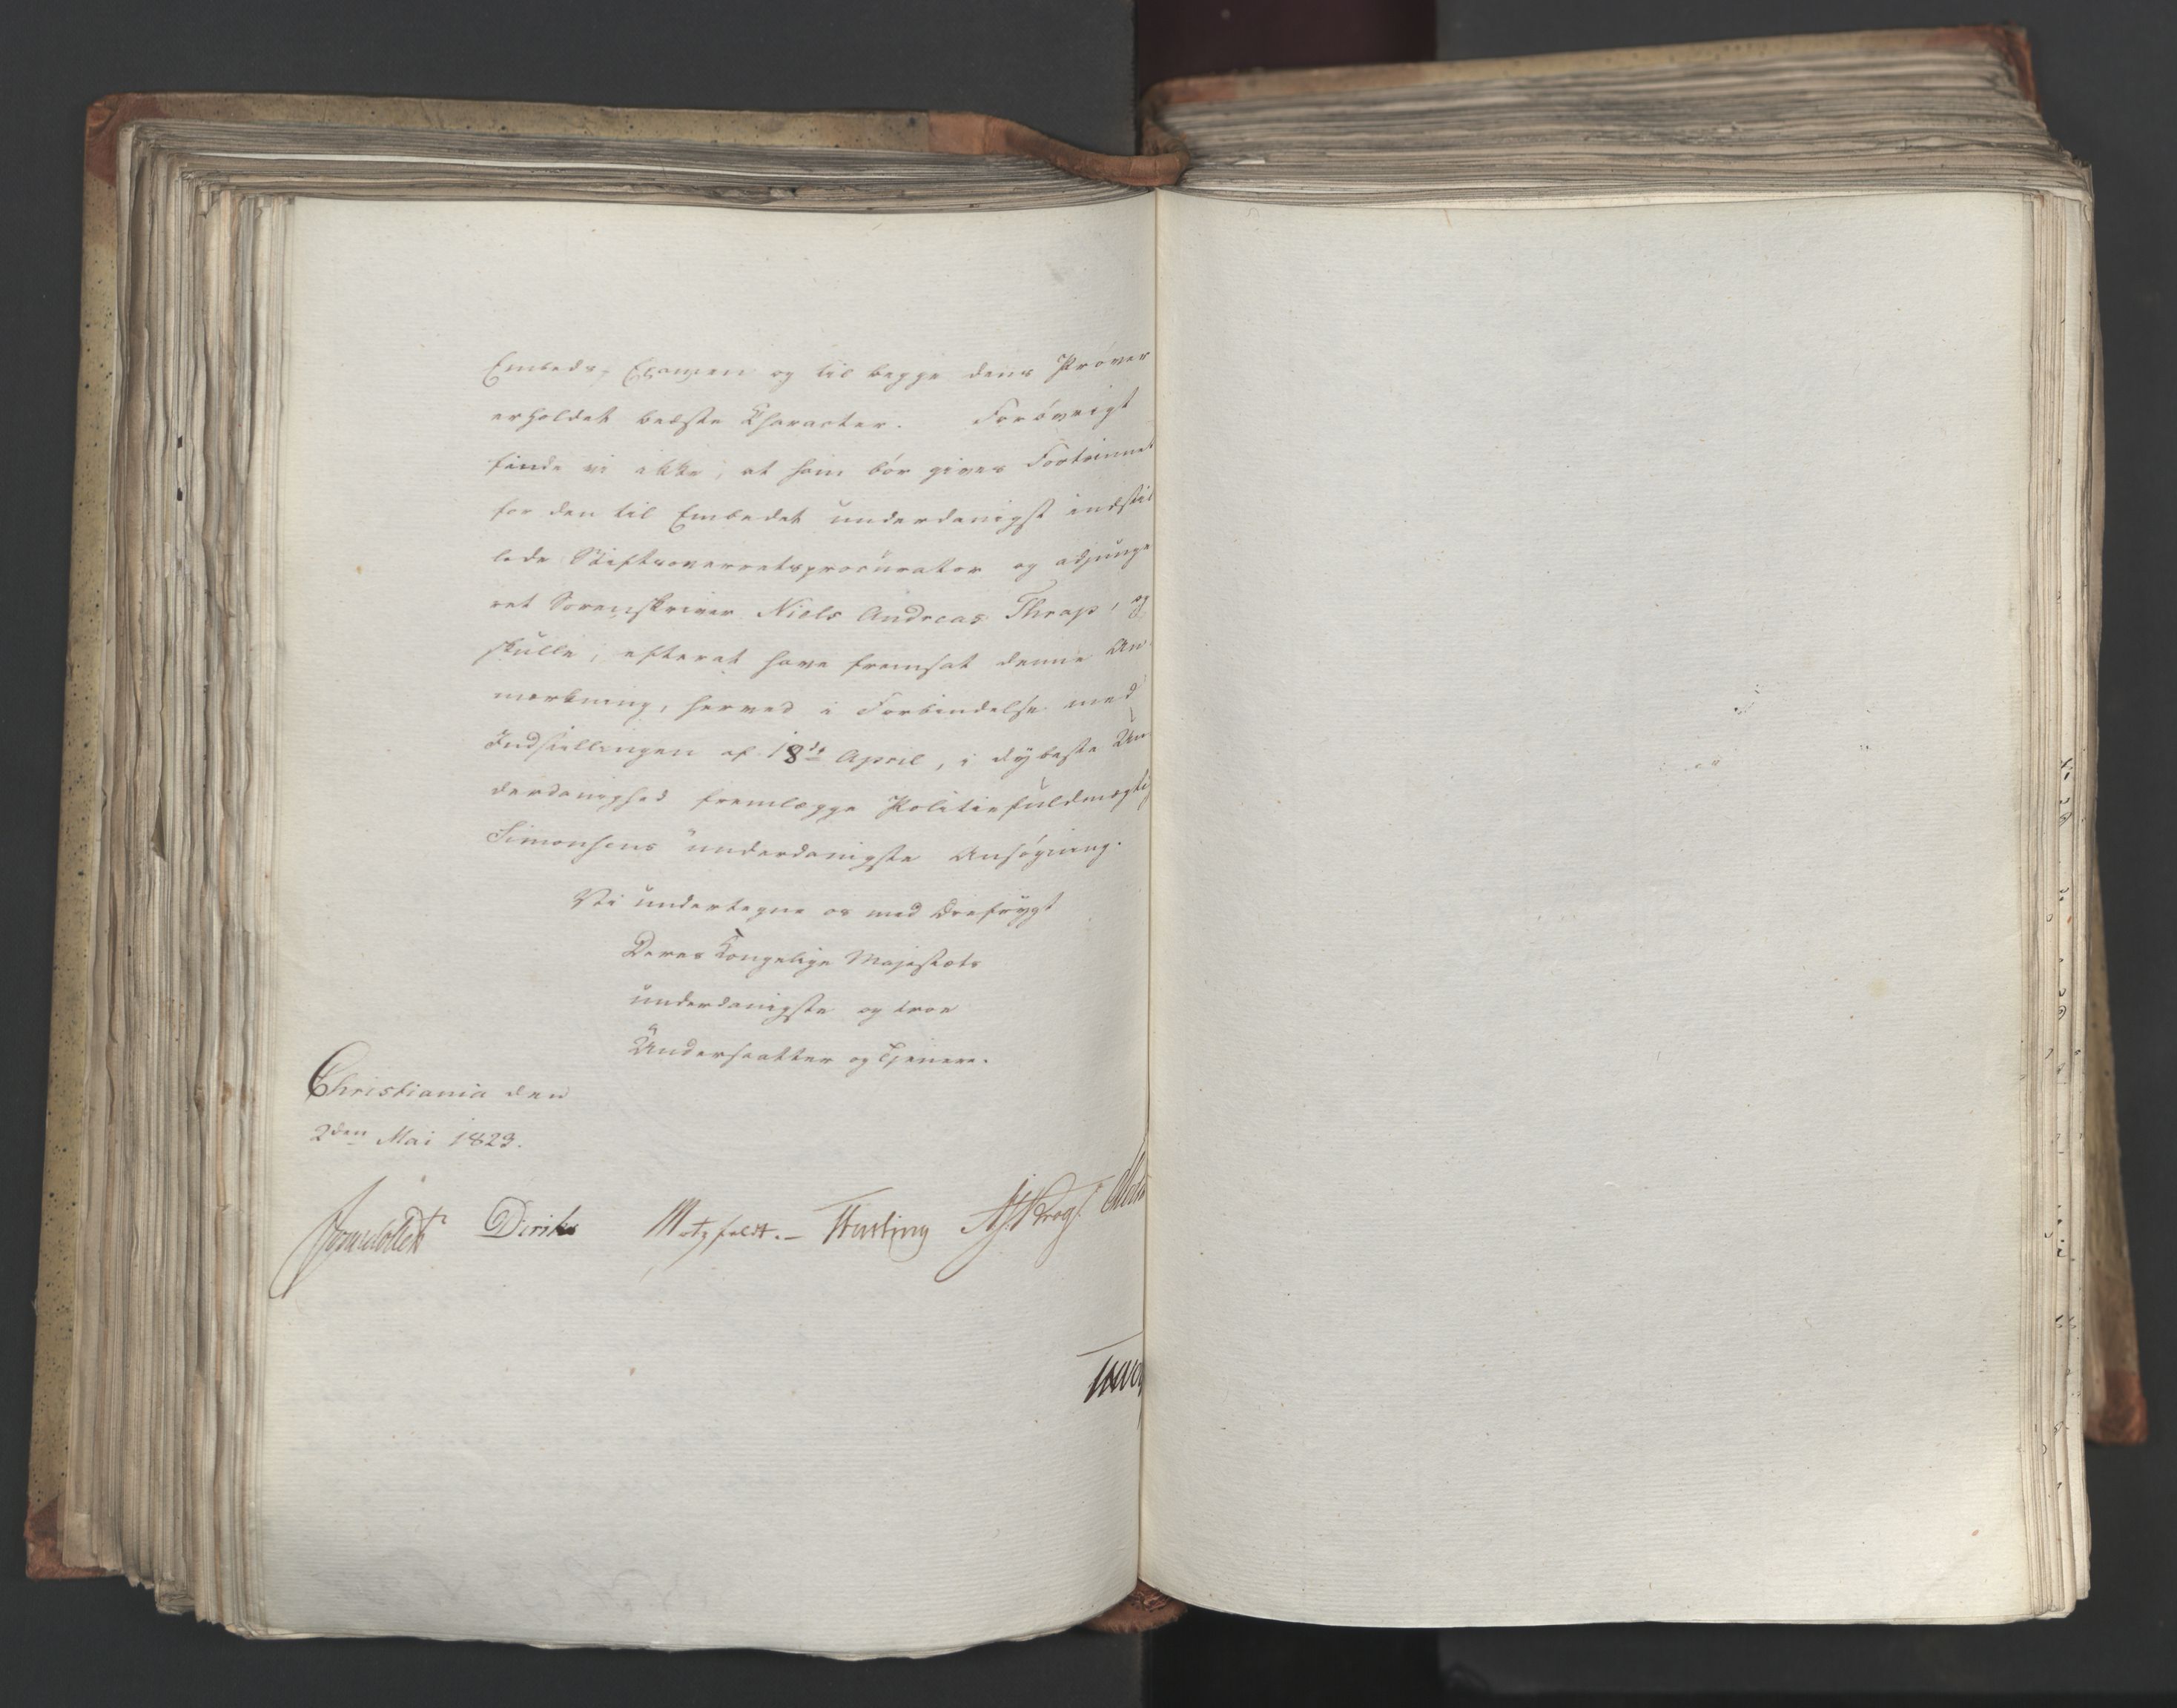 Embeds-Examen og til begge dens Prøver
erholdet bedste Character. Forøvrigt
finde vi ikke, at ham bør gives Fortrinnet
for den til Embedet underdanigst indstil
lede Stiftsoverretsprocurator og adjunge
ret Sorenskriver Niels Andreas Thrap, og
skulle, efterat have fremsat denne An-
mærkning, herved i Forbindelse med
Indstillingen af 18de April, i dybeste Un
derdanighed fremlægge Politiefuldmægtig
Simonsens underdanigste Ansøgning.
Vi undertegne os med Ærefrygt
Deres Kongelige Majestæts
underdanigste og troe
Undersaatter og Tjenere.
Christiania den
2den Mai 1823.
Sommerhielm Diriks Motzfeldt. Fasting